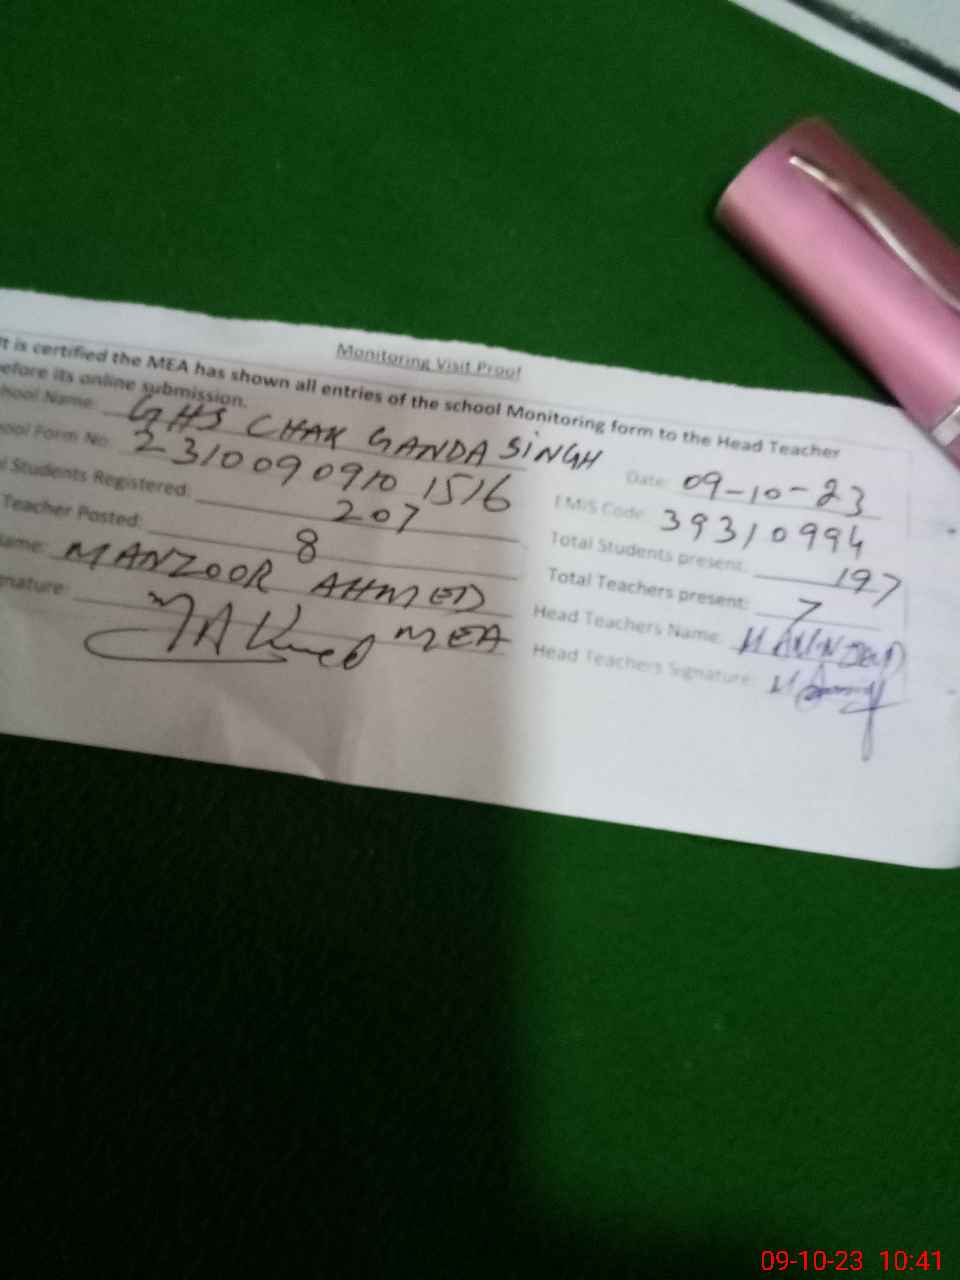 Monitoring Visit Proof
It is certified the MEA has shown all entries of the school Monitoring form to the Head Teacher
before its online submission.
hool Name: GHS CHAK GANDA SINGH Date: 09-10-23
ool Form No: 2310090910 1516 EMIS Code: 39310994
l Students Registered: 207 Total Students present: 197
Teacher Posted: 8 Total Teachers present: 7
ame: MANZOOR AHMED Head Teachers Name:
gnature: MEA Head Teachers Signature:
09-10-23 10:41